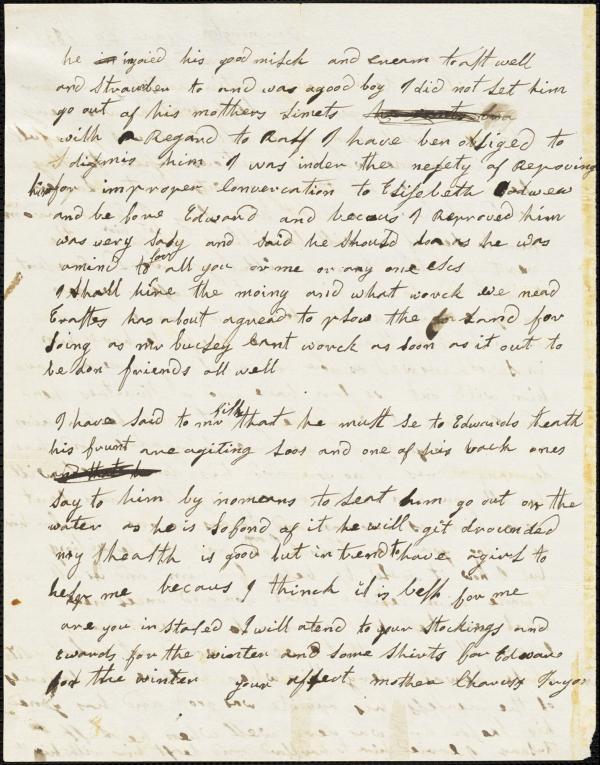 he injoied his good milck and cream toast well
and Strawber to and was a good boy I did not let him
go out of his mothers limets
with a Regard to Raff I have ben obliged to
dismis him I was inder the nesety of Reproving
him for improper Convercation to Elisebeth
and be fore Edward and becaus I Reproved him
was very sasy and said he should doa as he was
amind to for all you or me or any one elcs
I shall hire the moing and what worck we nead
Erastes has about agread to plow the Land for
as mr bucley Cant worck as soon as it out to
be don friends all well
I have said to mr that he must se to Edwards teath
his frunt are agiting loos and one of his back ones
Say to him by nomeans to leat him go out on the
water as he is so fond of it he will git drounded
my healthh is good but intrend to have a girl to
help me becaus I thinck it is best for me
are you in staled I will atend to your stockings and
Edwards for the winter and some shirts for Edward
for the winter your affect mother